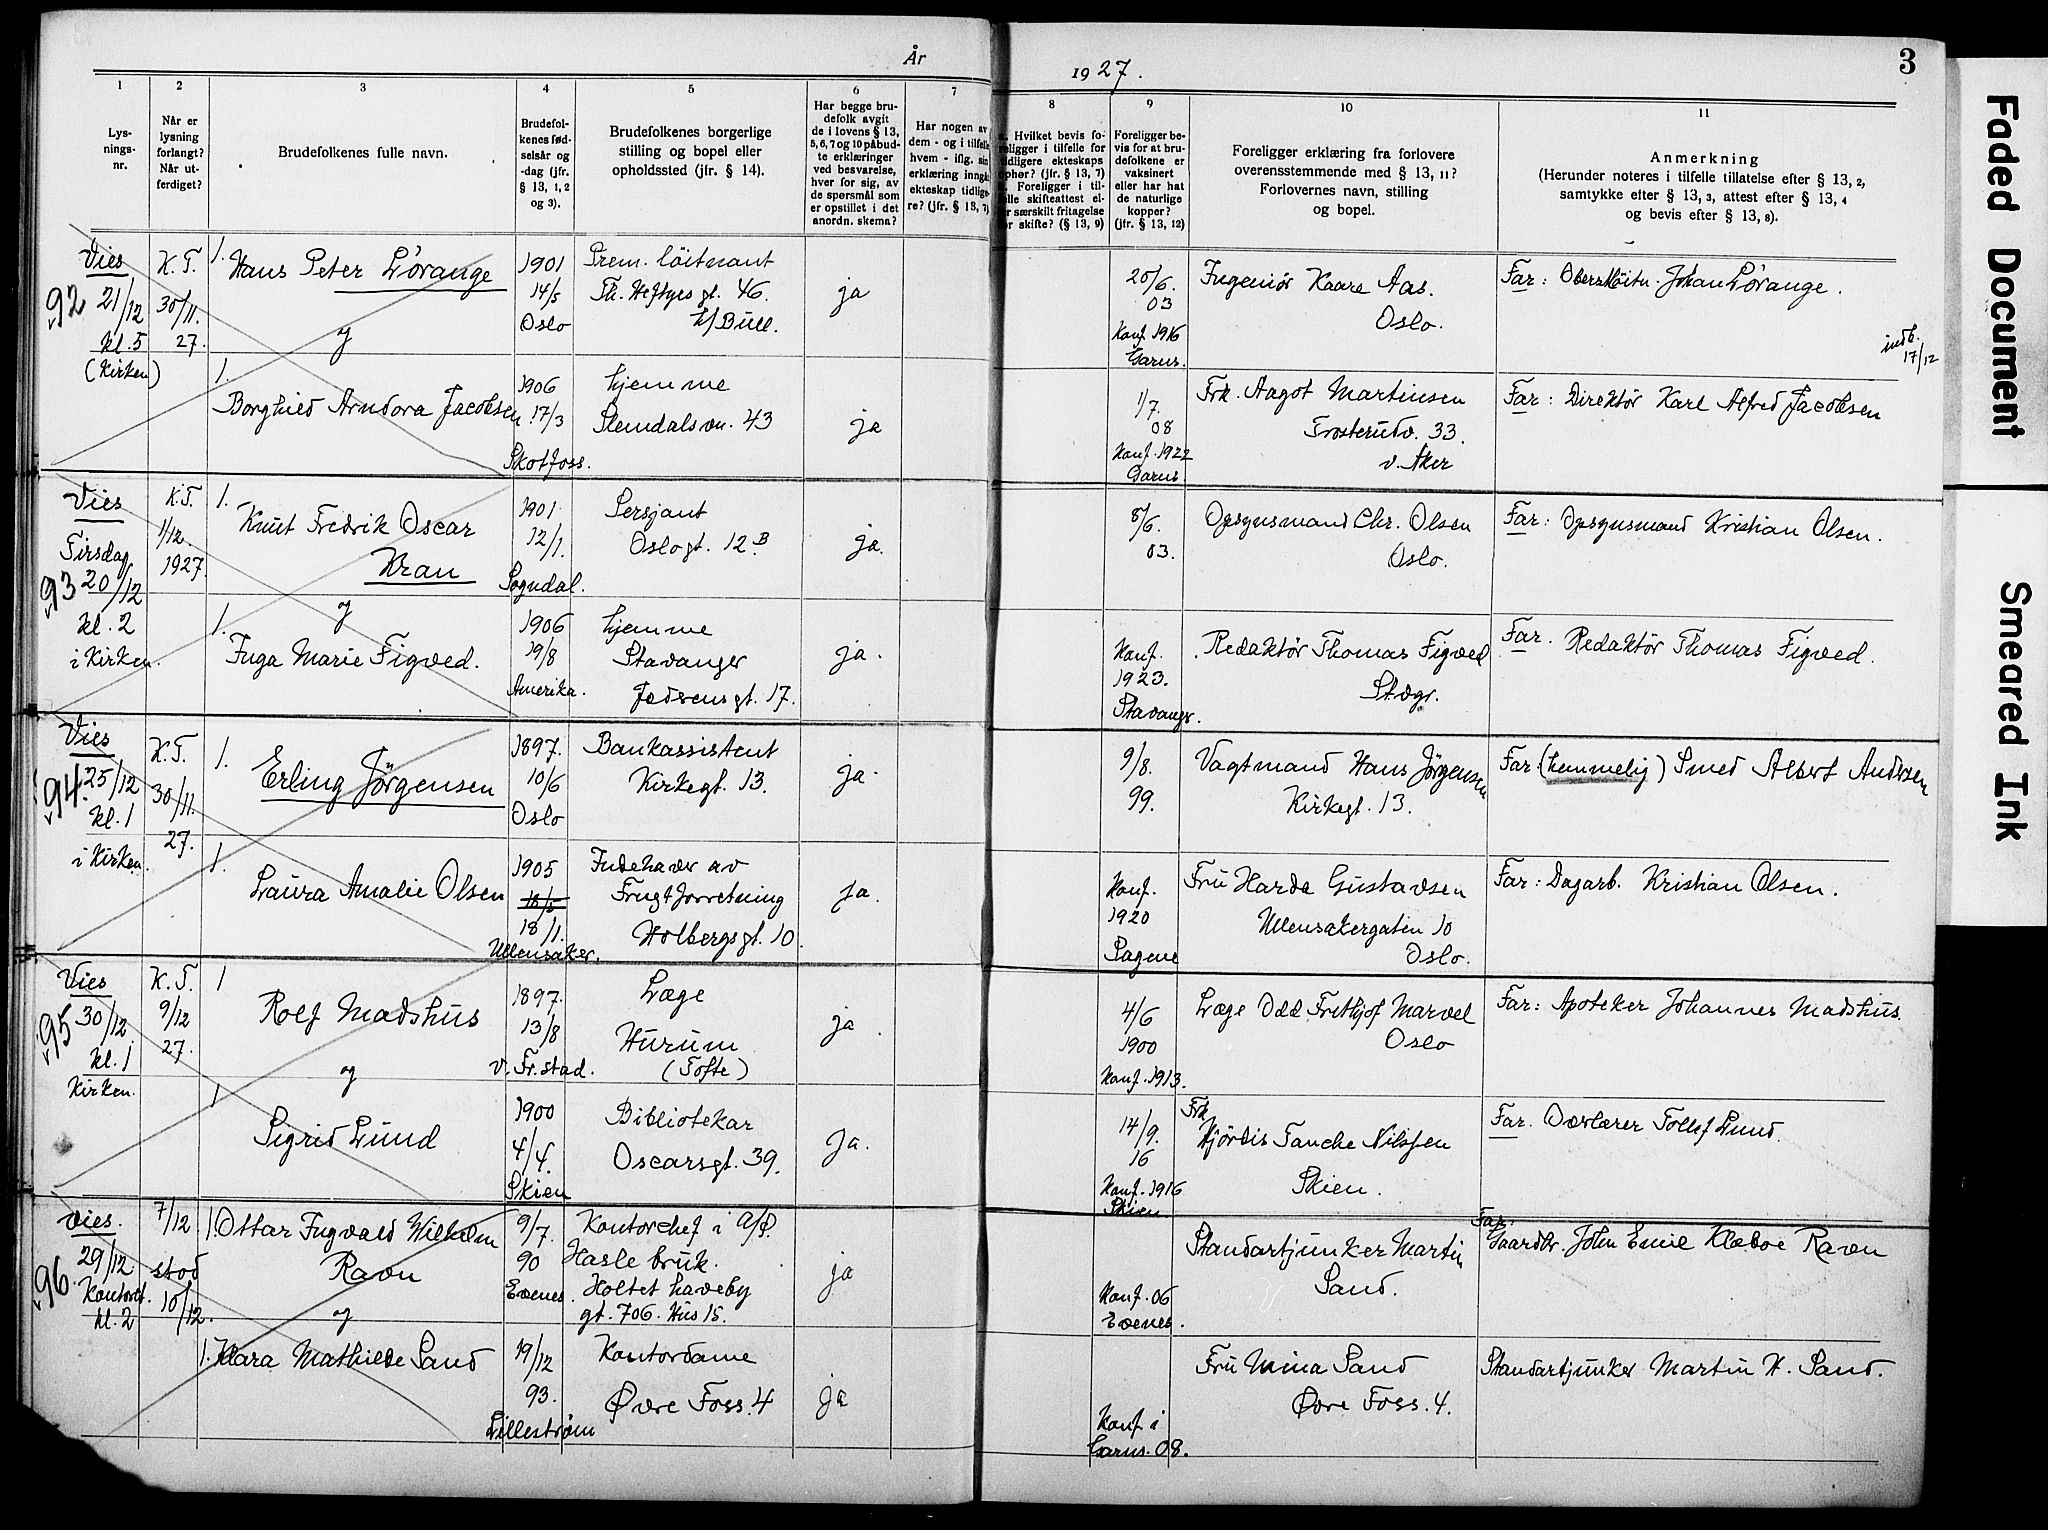 År
1927.
3
1
2
3
4
5
6
7
8
9
10
11
Lys-
nings-
nr.
Når er
lysning
forlangt?
Når ut-
ferdiget?
Brudefolkenes fulle navn.
Brudefol-
kenes fød-
selsår og
-dag (jfr.
§ 13, 1, 2
og 3).
Brudefolkenes borgerlige
stilling og bopel eller
opholdssted (jfr. § 14).
Har begge bru-
defolk avgit
de i lovens § 13,
5, 6, 7 og 10 påbud-
te erklæringer
ved besvarelse,
hver for sig, av
de spørsmål som
er opstillet i det
anordn. skema?
Har nogen av
dem - og i tilfelle
hvem - iflg. sin
erklæring inngå
ekteskap tidlige-
re? (jfr. § 13, 7)
Hvilket bevis fo-
religger i tilfelle for
tidligere ekteskaps
ophør? (jfr. § 13, 7)
Foreligger i til-
felle skifteattest el-
r særskilt fritagelse
or skifte? (§ 13, 9)
Foreligger be-
vis for at bru-
defolkene er
vaksinert
eller har hat
de naturlige
kopper?
(jfr. § 13, 12)
Foreligger erklæring fra forlovere
overensstemmende med § 13, 11?
Forlovernes navn, stilling
og bopel.
Anmerkning
(Herunder noteres i tilfelle tillatelse efter § 13, 2,
samtykke efter § 13, 3, attest efter § 13, 4
og bevis efter § 13, 8).
92
Vies
21/12
kl. 5
(Kirken)
K.T.
30/11.
27.
1. Hans Peter L'orange
og
1901
14/5
Oslo
Prem. löitnant
Th. Heftyes gt. 46.
h/ Bull.
ja
20/6.
03
Konf. 1916
Garns.
Ingeniör Kaare Aas.
Oslo.
Far: Oberstlöitn. Johan L'orange.
indb.
17/12
1.
Borghild Arndora Jacobsen
1906
17/3
Skotfoss.
hjemme
Slemdalsvn. 43
ja
1/7.
08
Konf. 1922
Garns.
Frk. Aagot Martinsen
Trosterudv. 33.
v. Aker
Far: Direktör Karl Alfred Jacobsen
93
Vies
Tirsdag
20/12
kl. 2
i Kirken.
K.T.
1/12.
1927.
1.
Knut Fredrik Oscar
Kran
og
1901
12/1.
Sogndal.
Sersjant
Oslogt. 12 B
ja.
8/6.
03.
Opsynsmand Chr. Olsen
Oslo.
Far: Opsynsmand Kristian Olsen.
1.
Inga Marie Figved.
1906
19/8
Amerika.
hjemme
Stavanger
Jædrensgt. 17.
ja.
Konf.
1923.
Stavangr.
Redaktör Thomas Figved
Stvgr.
Far. Redaktör Thomas Figved.
94.
Vies
25/12
kl. 1
i Kirken.
K.T.
30/11.
27.
1.
Erling Jörgensen
1897.
10/6
Oslo
Bankassistent
Kirkegt. 13.
ja.
9/8.
99.
Vagtmand Hans Jörgensen
Kirkegt. 13.
Far (hemmelig) Smed Albert Andersen
1.
Laura Amalie Olsen
1905
18/5
18/1.
Ullensaker.
Indehaver av
Frugtforretning
Holbergsgt. 10.
ja.
Konf.
1920
Sagene
Fru Harda Gustavsen
Ullensakergaten 10
Oslo.
Far: Dagarb. Kristian Olsen.
95
Vies
30/12
kl. 1
Kirken.
K.T.
9/12
27.
1
Rolf Madshus
og
1897.
13/8
v. Fr.stad.
Læge
Hurum
(Tofte)
ja.
4/6
1900
Konf. 1913.
Læge Odd Frithjof Marvel
Oslo
Far: Apoteker Johannes Madshus.
1
Sigrid Lund
1900
4/4.
Skien
Bibliotekar
Oscarsgt. 39.
ja.
14/9.
16
Konf. 1916
Skien
Frk
Hjördis Tanche Nilssen
Skien.
Far. Overlærer Tollef Lund.
96
Vies.
29/12
Kontoret.
kl. 2
7/12
stod
10/12.
1. Ottar Ingvald Wilhelm
Ravn
og
9/7.
90
Evenes.
Kontorchef i A/S.
Hasle bruk.
Holtet haveby
gt. 706. Hus 15.
ja
Konf. 06
Evenes.
Standartjunker Martin
Sand.
Far:
Gaardbr. John Emil Klæboe Ravn
1. Klara Mathilde Sand
19/12
93.
Lillestrøm
Kontordame
Øvre Foss. 4
ja
Konf. i
Garns. 08.
Fru Mina Sand
Øvre Foss. 4.
Standartjunker Martin H. Sand.
Faded Document
Smeared Ink